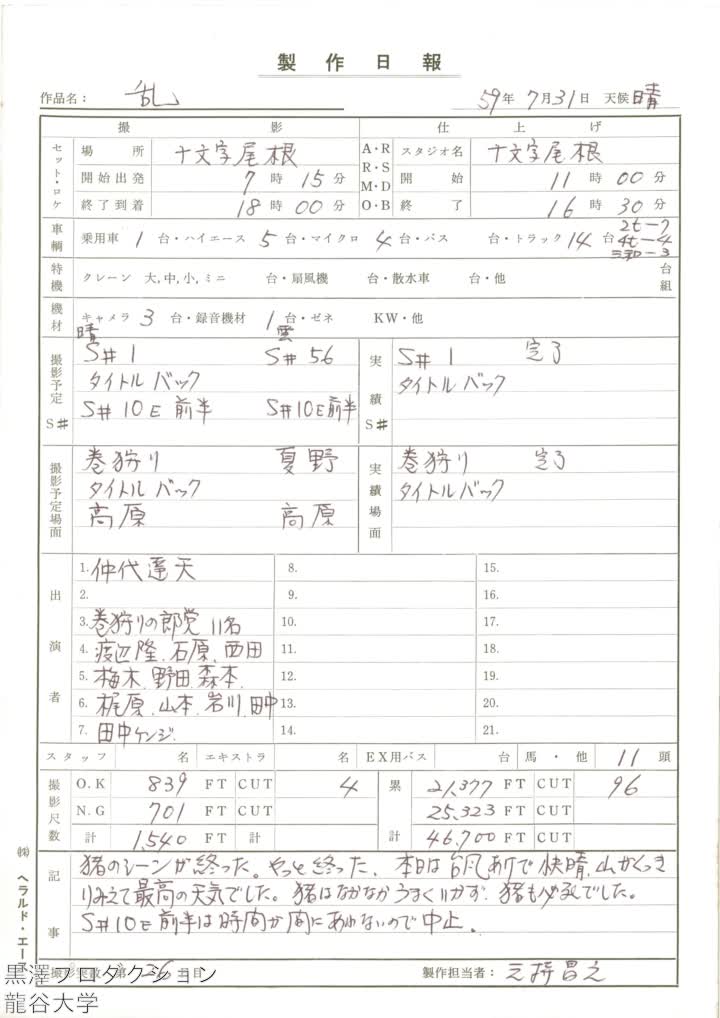 製作日報
作品名： 乱 59年 7月31日 天候 晴
撮影 仕上げ
セット・ロケ 場所 十文字尾根 A・R R・S M・D O・B スタジオ名 十文字尾根
開始出発 7時15分 開始 11時00分
終了到着 18時00分 終了 16時30分
車輌 乗用車 1台・ハイエース 5台・マイクロ 4台・バス 台・トラック 14台 2t-7 4t-4
特機 クレーン 大,中,小,ミニ 台・扇風機 台・散水車 台・他 台組
機材 キャメラ 3台・録音機材 1台・ゼネ KW・他
撮影予定 S# 晴 曇 実績 S#
S#1 S#56 S#1 完了
タイトルバック タイトルバック
S#10E前半 S#10E前半
撮影予定場面 実績場面
巻狩り 夏野 巻狩り 完了
タイトルバック タイトルバック
高原 高原
出演者
1. 仲代達矢 8. 15.
2. 9. 16.
3. 巻狩りの郎党 11名 10. 17.
4. 渡辺隆、石原、西田 11. 18.
5. 梅木、野田、森本、 12. 19.
6. 梶原、山本、岩川、田中 13. 20.
7. 田中ケンジ 14. 21.
スタッフ 名 エキストラ 名 EX用バス 台 馬・他 11頭
撮影尺数 O.K 839 FT CUT 4 累 21,377 FT CUT 96
N.G 701 FT CUT 25,323 FT CUT
計 1,540 FT 計 計 46,700 FT CUT
記事
猪のシーンが終った。やっと終った。本日は台風あけで快晴、山がくっき
りみえて最高の天気でした。猪はなかなかうまくいかず、猪も必死でした。
S#10E前半は時間が間にあわないので中止。
撮影実数 第 36日目 製作担当者：
㈱ヘラルド・エース
黒澤プロダクション
龍谷大学